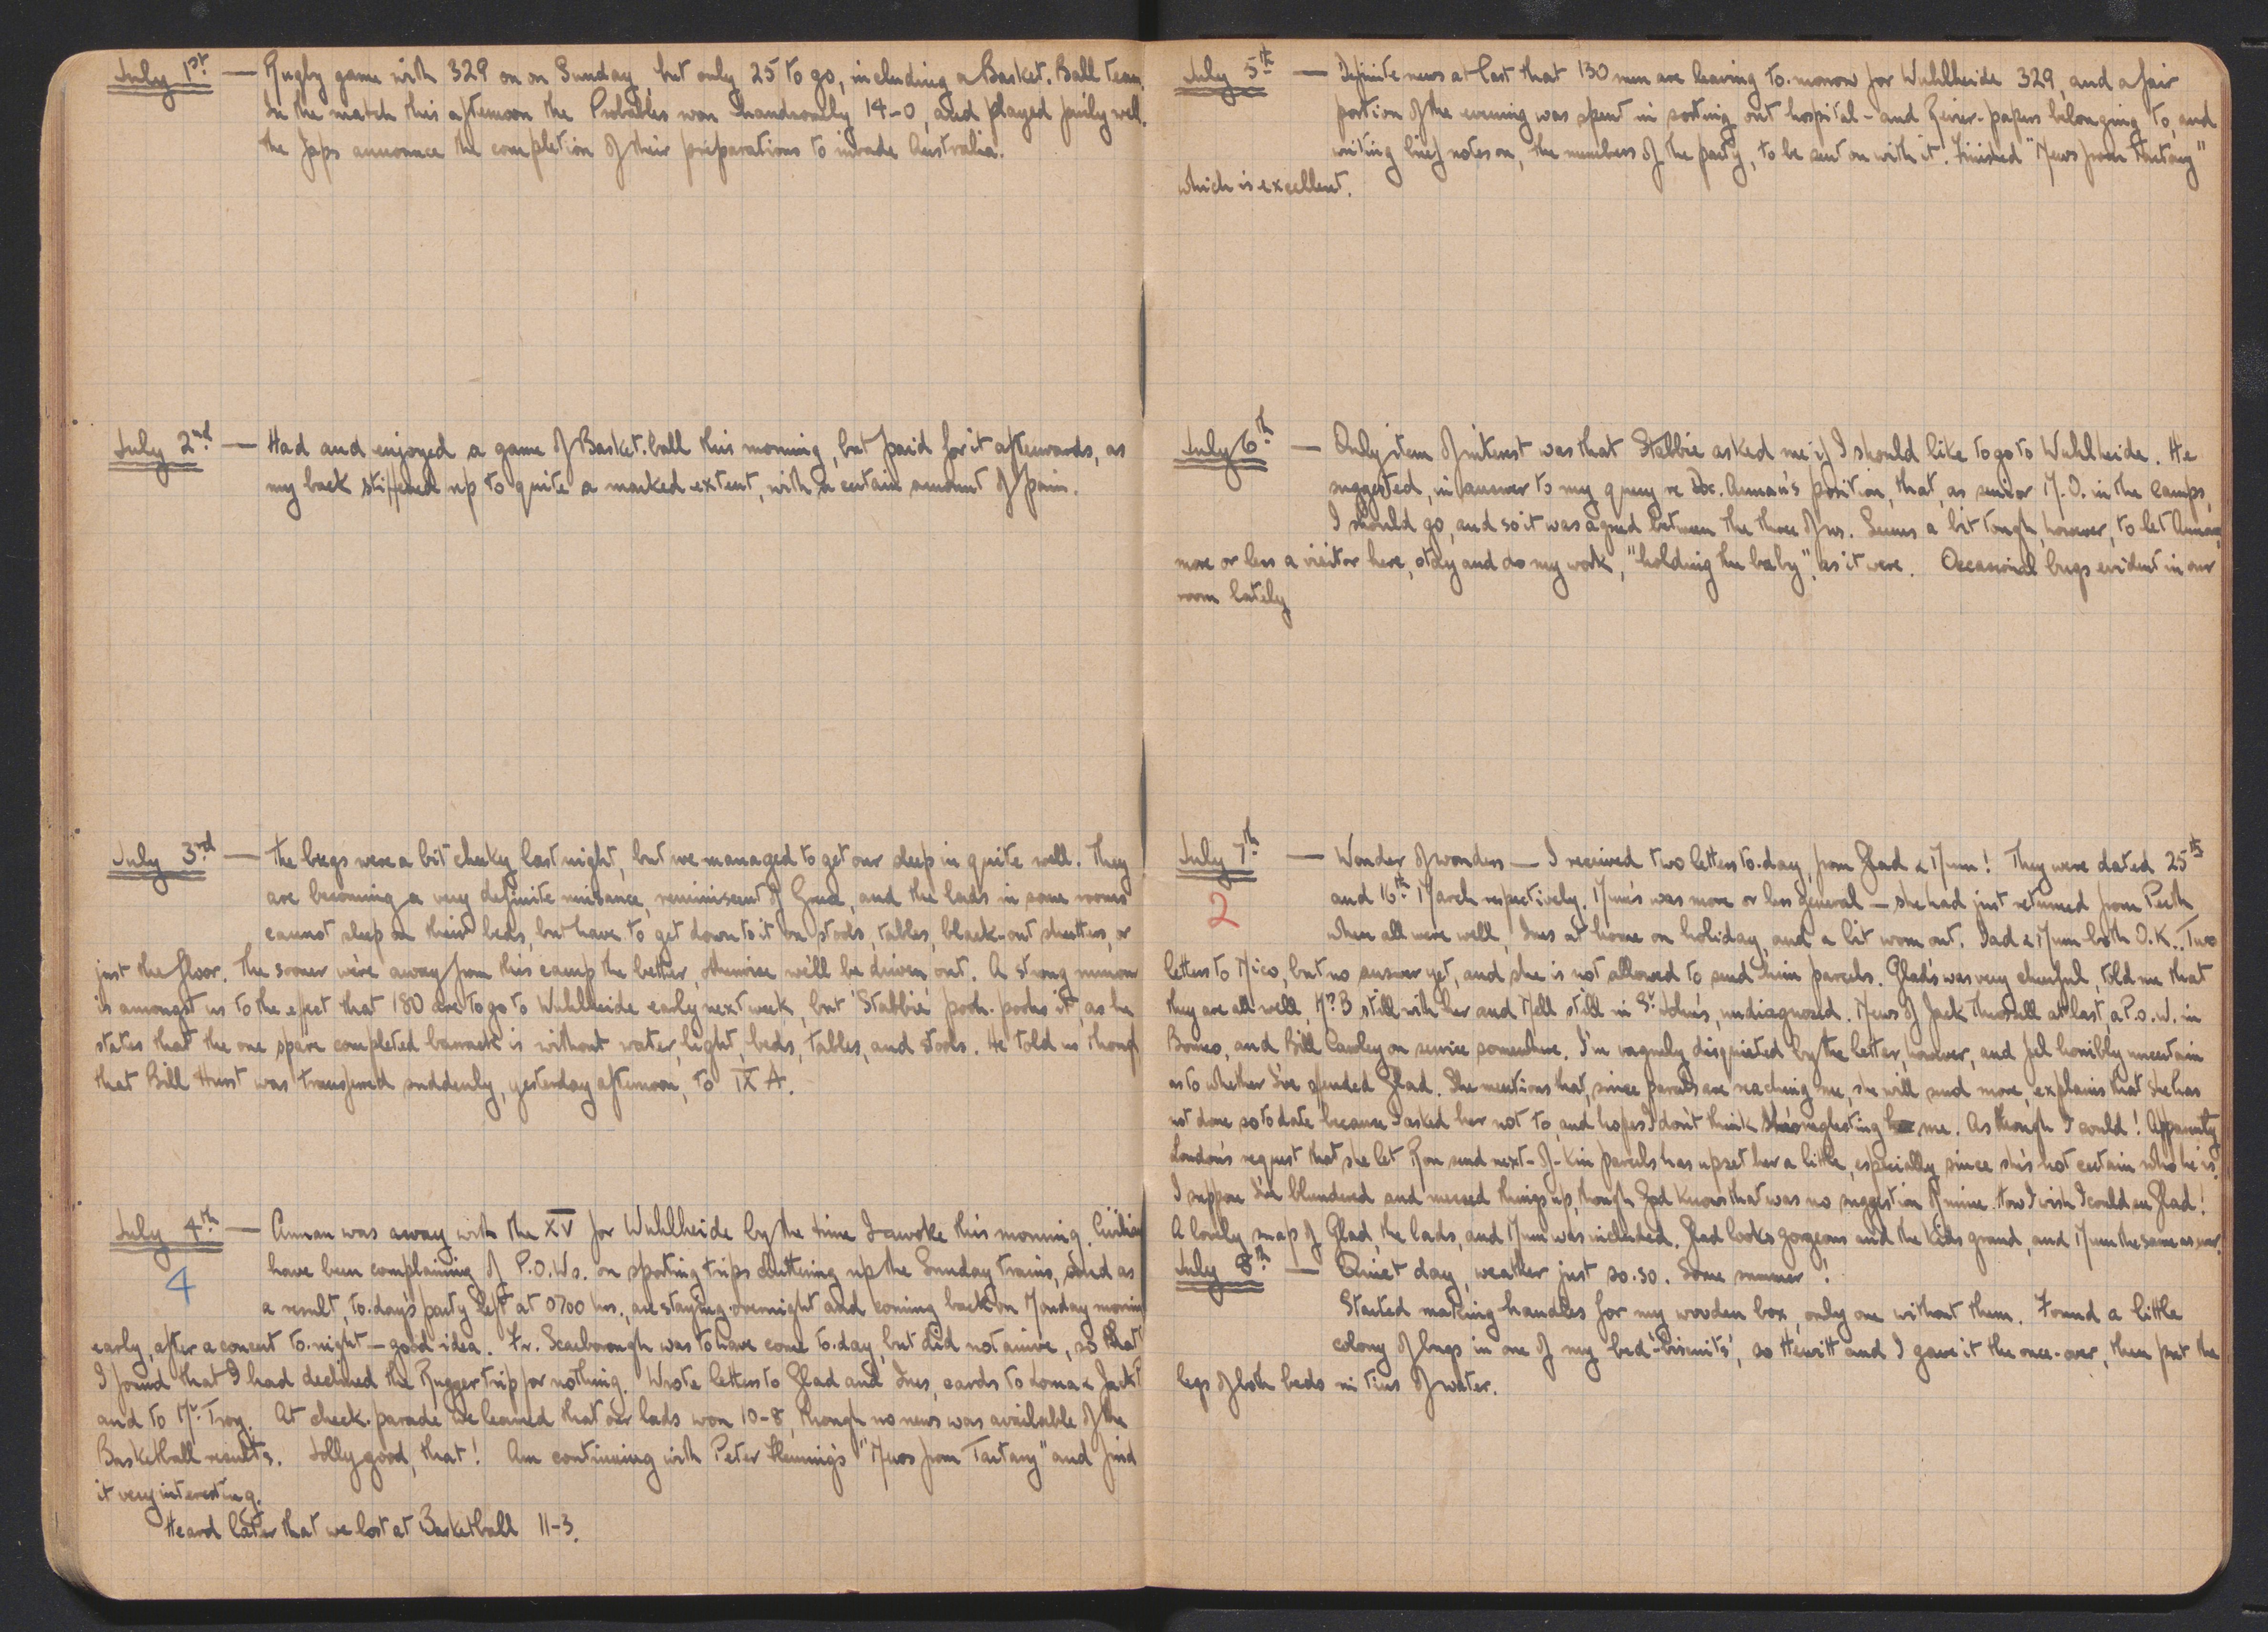 July 1st — Rugby game with 329 on on Sunday, but only 25 to go, including a Basket. Ball team.
In the match this afternoon the Probables won handsomely 14-0, and played fairly well.
The Japs announce the completion of their preparations to invade Australia.
July 2nd — Had and enjoyed a game of Basket.ball this morning, but paid for it afterwards, as
my back stiffened up to quite a marked extent, with a certain amount of pain.
July 3rd — The bugs were a bit cheeky last night, but we managed to get our sleep in quite well. They
are becoming a very definite nuisance, reminiscent of Greece, and the lads in some rooms
cannot sleep on their beds, but have to get down to it on stools, tables, black-out shutters, or
just the floor. The sooner we're away from this camp the better, otherwise we'll be driven out. A strong rumour
is amongst us to the effect that 180 are to go to Wuhlheide early next week, but 'Stabbie' pooh-poohs it, as he
states that the one spare completed barrack is without water, light, beds, tables, and stools. He told us though
that Bill Hurst was transferred suddenly, yesterday afternoon, to IX A.
July 4th — Annan was away with the XV for Wuhlheide by the time I awoke this morning.
4
have been complaining of P.O.Ws. on sporting trips cluttering up the Sunday trains, and as
a result, to.day's party left at 0700 hrs., are staying overnight and coming back on Monday morning
early, after a concert to.night — good idea. Fr. Scarborough was to have come to.day, but did not arrive, so that
I found that I had declined the Rugger trip for nothing. Wrote letters to Glad and Ines, cards to Loma & Jack
and to Mr. Troy. At check.parade we learned that our lads won 10-8, though no news was available of the
Basketball results. Jolly good, that! Am continuing with Peter Flemming's "News from Tartary" and find
it very interesting.
Heard later that we lost at Basketball 11-3.
July 5th — Definite news at last that 130 men are leaving to.morrow for Wuhlheide 329, and a fair
portion of the evening was spent in sorting out hospital- and Revier-papers belonging to, and
writing brief notes on, the members of the party, to be sent on with it. Finished "News from Tartary"
which is excellent.
July 6th — Only item of interest was that Stabbie asked me if I should like to go to Wuhlheide. He
suggested, in answer to my query re Doc. Annan's position, that, as senior M.O. in the camps,
I should go, and so it was agreed between the three of us. Seems a bit tough, however, to let Annan,
more or less a visitor here, stay and do my work, "holding the baby", as it were. Occasional bugs evident in our
room lately
July 7th — Wonder of wonders — I received two letters to.day, from Glad & Mum! They were dated 25th
2
and 16th March respectively. Mum's was more or less general — she had just returned from Perth
where all were well, Ines at home on holiday, and a bit worn out. Dad & Mum both O.K.. Two
letters to Mico, but no answer yet, and she is not allowed to send him parcels. Glad's was very cheerful, told me that
they are all well, Mrs B still with her and Nell still in St. John's, undiagnosed. News of Jack Threlfall at last, a P.o.W. in
Borneo, and Bill Cawley on service somewhere. I'm vaguely disquieted by the letter, however, and feel horribly uncertain
as to whether I've offended Glad. She mentions that, since parcels are reaching me, she will send more, explains that she has
not done so to date because I asked her not to, and hopes I don't think she's neglecting me. As though I could! Apparently
London's request that she let Ron send next-of-kin parcels has upset her a little, especially since she's not certain who he is.
I suppose I've blundered and messed things up, though God knows that was no suggestion of mine. How I wish I could see Glad!
A lovely snap of Glad, the lads, and Mum was included. Glad looks gorgeous and the kids grand, and Mum the same as ever.
July 8th — Quiet day, weather just so.so. Some summer!
Started making handles for my wooden box, only one without them. Found a little
colony of bugs in one of my bed-'biscuits', so Hewitt and I gave it the once-over, then put the
legs of both beds in tins of water.